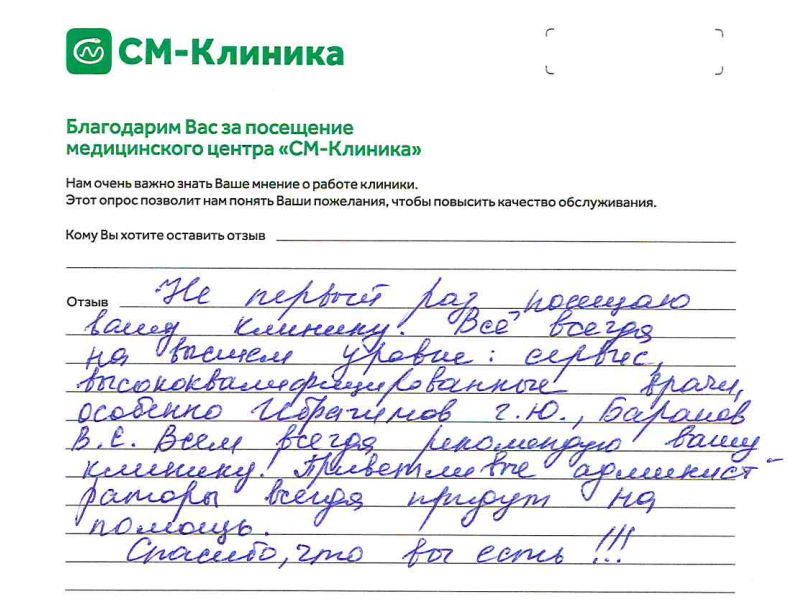 СМ-Клиника
Благодарим Вас за посещение
медицинского центра «СМ-Клиника»
Нам очень важно знать Ваше мнение о работе клиники.
Этот опрос позволит нам понять Ваши пожелания, чтобы повысить качество обслуживания.
Кому Вы хотите оставить отзыв
Отзыв Не первый раз посещаю
вашу клинику. Всё всегда
на высшем уровне: сервис,
высококвалифицированные врачи,
особенно Ибрагимов Г.Ю., Баранов
В.Е. Всем всегда рекомендую вашу
клинику. Приветливые админист-
раторы всегда придут на
помощь.
Спасибо, что вы есть!!!